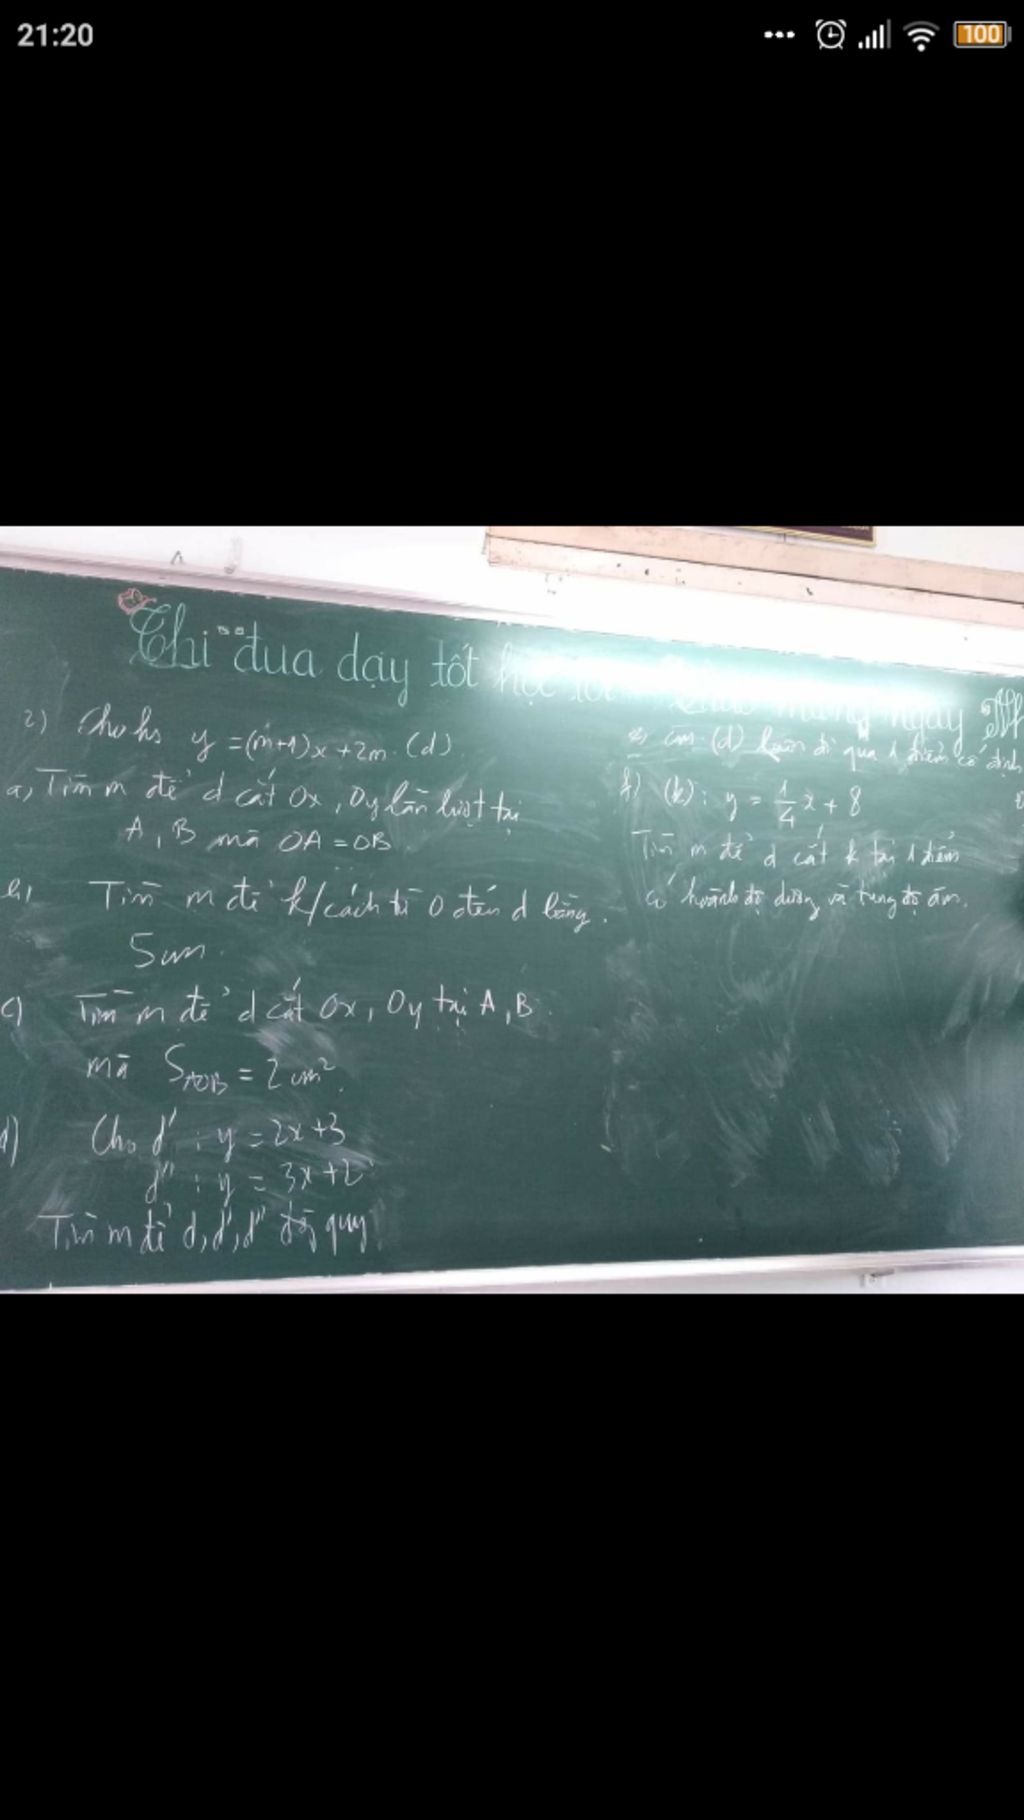 21:20
100
Thi đua dạy tốt học tốt mừng ngày
2) Cho hs y = (m+1)x + 2m. (d)
a, Tìm m để d cắt Ox, Oy lần lượt tại
A, B mà OA = OB
b, Tìm m để k/cách từ O đến d bằng
5cm.
c) Tìm m để d cắt Ox, Oy tại A, B
mà SAOB = 2cm².
d) Cho d' : y = 2x+3
d'' : y = 3x+2
Tìm m để d, d', d'' đồng quy
e, cm (d) luôn đi qua 1 điểm cố định
f) (k): y = 1/4 x + 8
Tìm m để d cắt k tại 1 điểm
có hoành độ dương và tung độ âm.